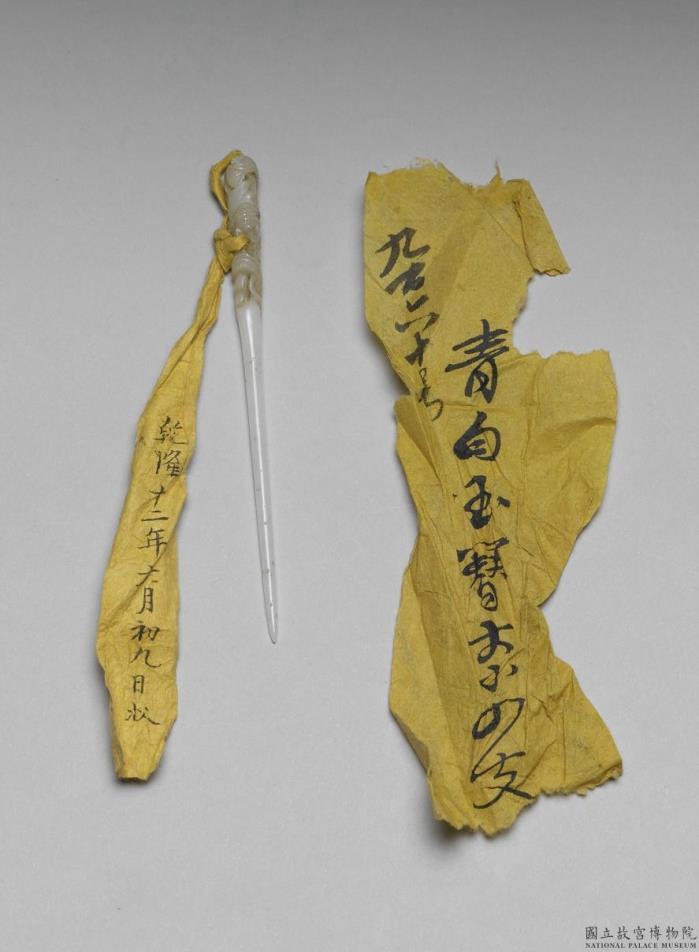 乾隆十二年六月初九日收
九百六十号
青白玉簪大小四支
國立故宮博物院
NATIONAL PALACE MUSEUM